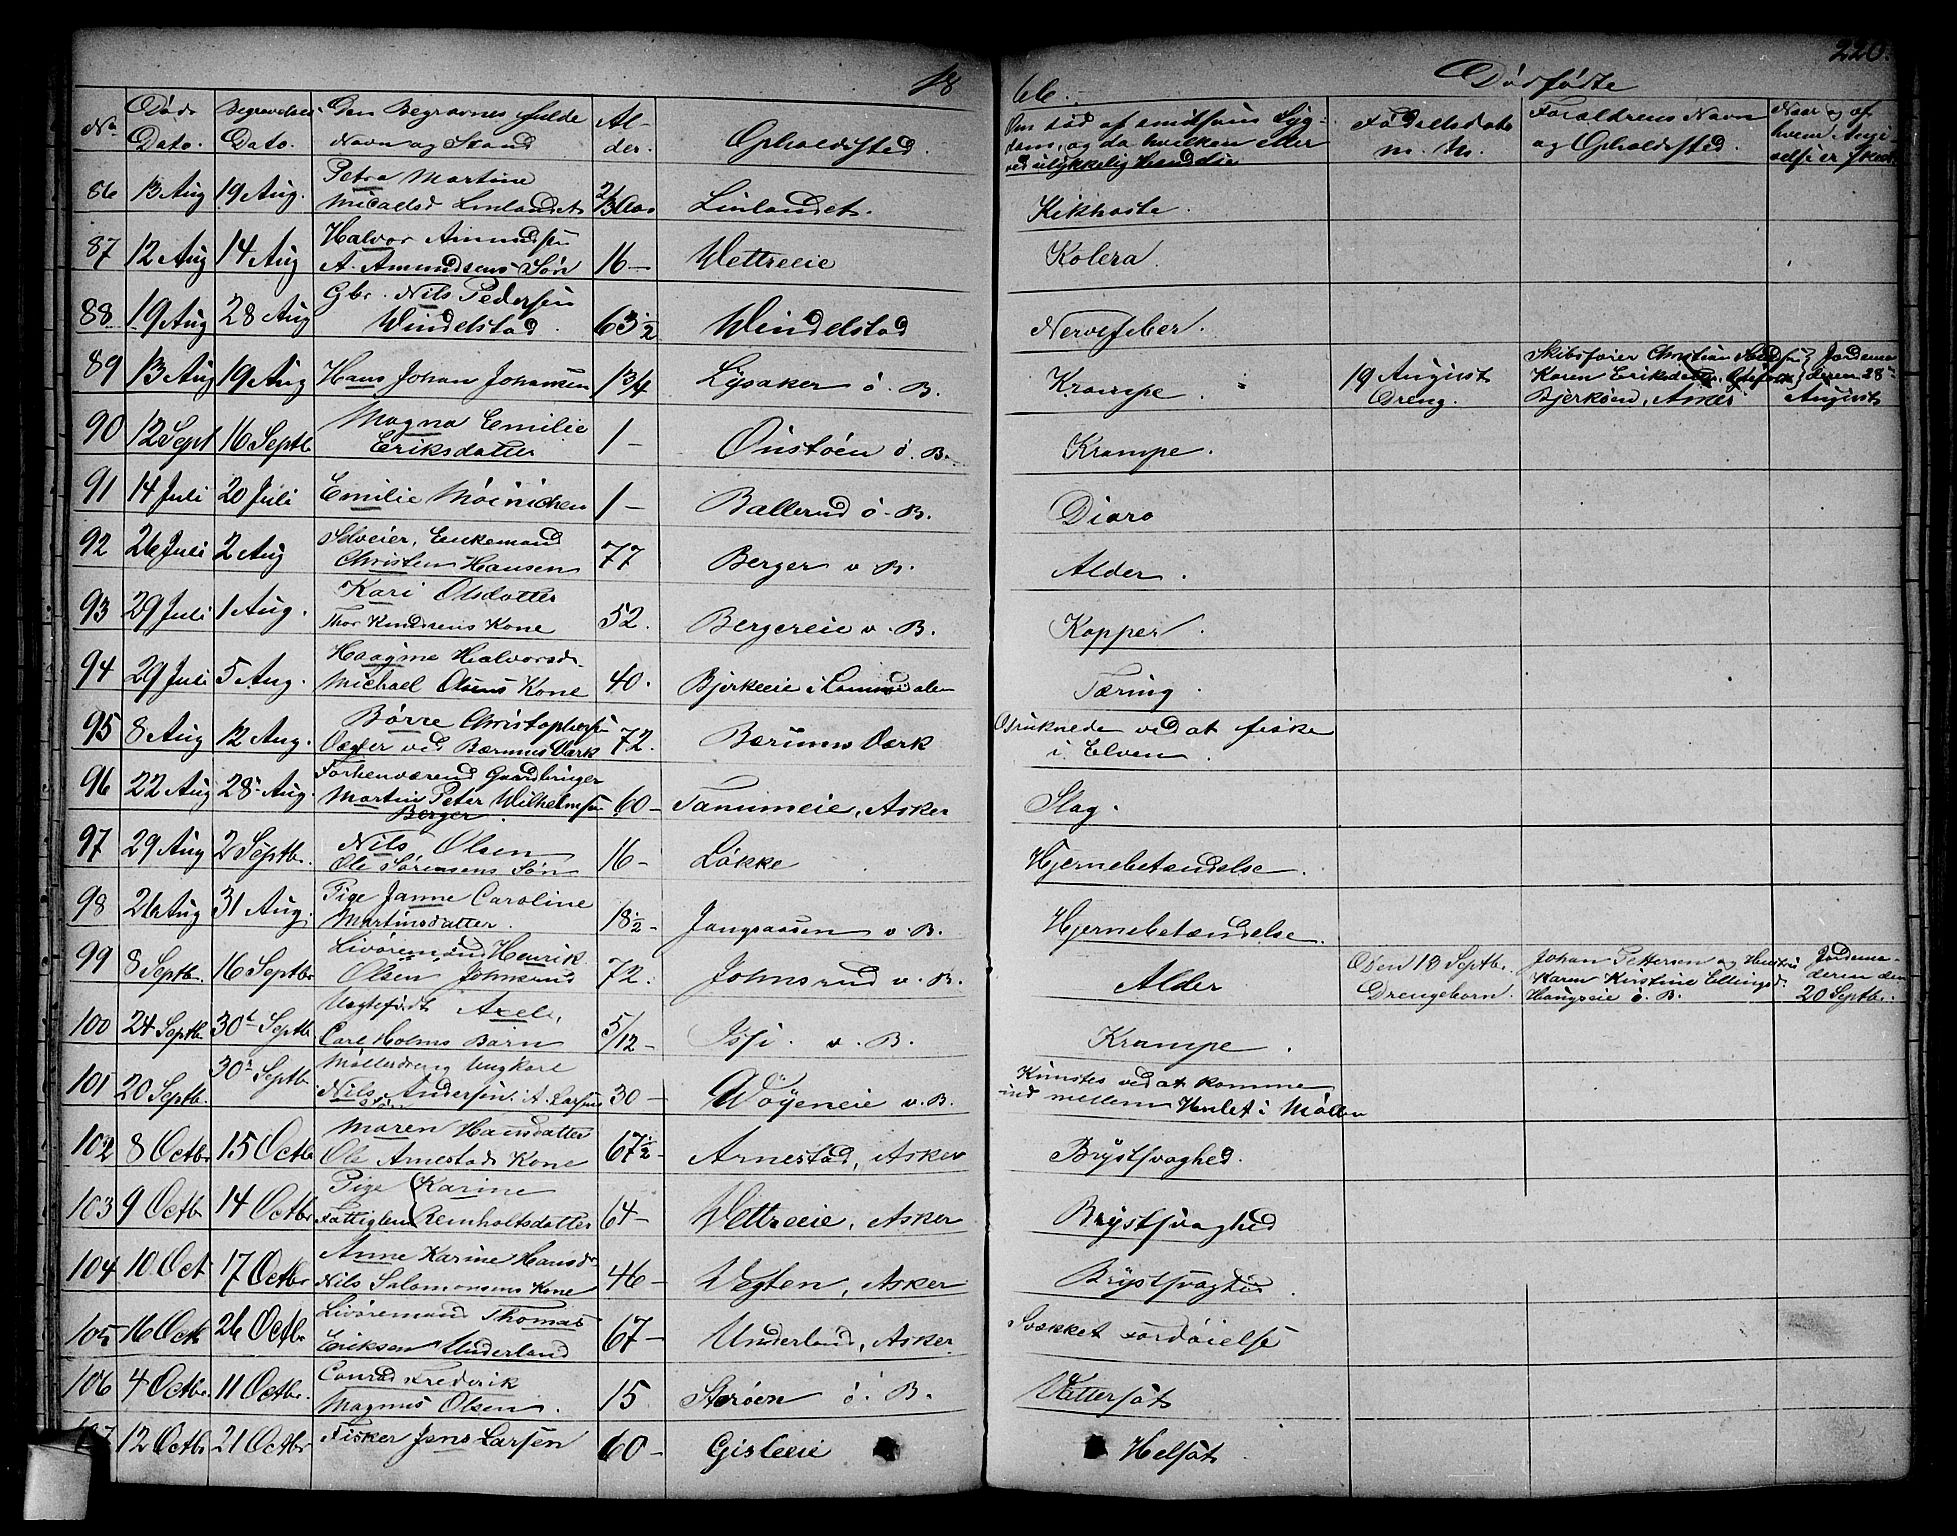 18 66. Dødfødte 220.
No Døds Dato. Begravelses Dato. Den Begravnes fulde Navn og Stand Alder. Opholdssted. Om død af smitsom Sygdom, og da hvilken eller ved ulykkelig Hændelse Fødselsdato m. M. Forældrenes Navn og Opholdssted. Naar og af hvem Anmeldelse er skeet
86 13 Aug 19 Aug. Petra Martine Micaelsd Linlandet Linlandet. Kikhoste.
87 12 Aug 14 Aug Halvor Amundsen A. Amundsens Søn 16— Wettreeie Kolera.
88 19 Aug 28 Aug Gbr. Nils Pedersen Windelstad. 63½ Windelstad Nervefeber.
89 13 Aug 19 Aug Hans Johan Johansen 1 3/4 Lysaker ø. B. Krampe. 19 August Dreng. Skibsfører Christian Karen Eriksdatter Bjerkøen, Asker Jordemoderen 28 August
90 12 Sept 16 Septb Magna Emilie Eriksdatter 1— Onstøen ø. B. Krampe.
91 14 Juli 20 Juli Emilie Møinichen 1— Ballerud ø. B. Diaro
92 26 Juli 2 Aug Selveier, Enkemand Christen Hansen 77 Berger v B. Alder.
93 29 Juli 1 Aug. Kari Olsdatter Thor Knudsens Kone 52. Bergereie v. B. Kopper.
94 29 Juli 5 Aug. Haagine Halvorsd. Michael Olsens Kone 40. Bjerkeeie i Lommedalen Tæring.
95 8 Aug 12 Aug. Børre Christophersen Vægter ved Bærums Værk 72. Bærums Værk Druknede ved at fiske i Elven.
96 22 Aug 28 Aug. Forhenværend Gaardbruger Martin Peter Wilhelmsen Berger. 60— Tanumeie, Asker Slag.
97 29 Aug 2 Septb. Nils Olsen Ole Sørensens Søn 16— Løkke Hjernebetændelse.
98 26 Aug 31 Aug. Pige Janne Caroline Martinsdatter. 18½— Jongsaasen v. B. Hjernebetændelse.
99 8 Septb. 16 Septbr Livøremand Henrik Olsen Johnsrud 72. Johnsrud v. B. Alder Den 13 Septb. Drengebarn. Johan Pettersen og Hustru Karen Kirstine Ellingsd. Haugseie ø. B. Jordemoderen den 20 Septb.
100 24 Septb. 30 Septb Uægtefødt Axel, Carl Holms Barn 5/12— Issi. v. B. Krampe.
101 20 Septb. 30 Septb Møllerdreng Ungkarl Nils Andersen. A. Larsens Søn 30— Wøyeneie v. B. Knustes ved at komme ind mellem Hjulet i Møllen
102 8 Octbr 15 Octb Maren Hansdatter Ole Arnestads Kone 67½— Arnestad, Asker Brystsvaghed.
103 9 Octb 14 Octbr Pige Karine Fattiglem Reinholtsdatter 64— Wettreeie, Asker Brystsvaghed
104 10 Oct 17 Octbr Anne Karine Hansdr Nils Salomonsens Kone 46— Vegten, Asker Brystsvaghed.
105 16 Octb 26 Octbr Livøremand Thomas Eriksen Underland 67— Underland, Asker. Svækket Fordøielse
106 4 Octbr. 11 Octbr. Conrad Frederik Magnus Olsen. 15. Storøen ø. B. Vattersot
107 12 Octbr 21 Octbr Fisker Jens Larsen 60— Gisleeie Helsot